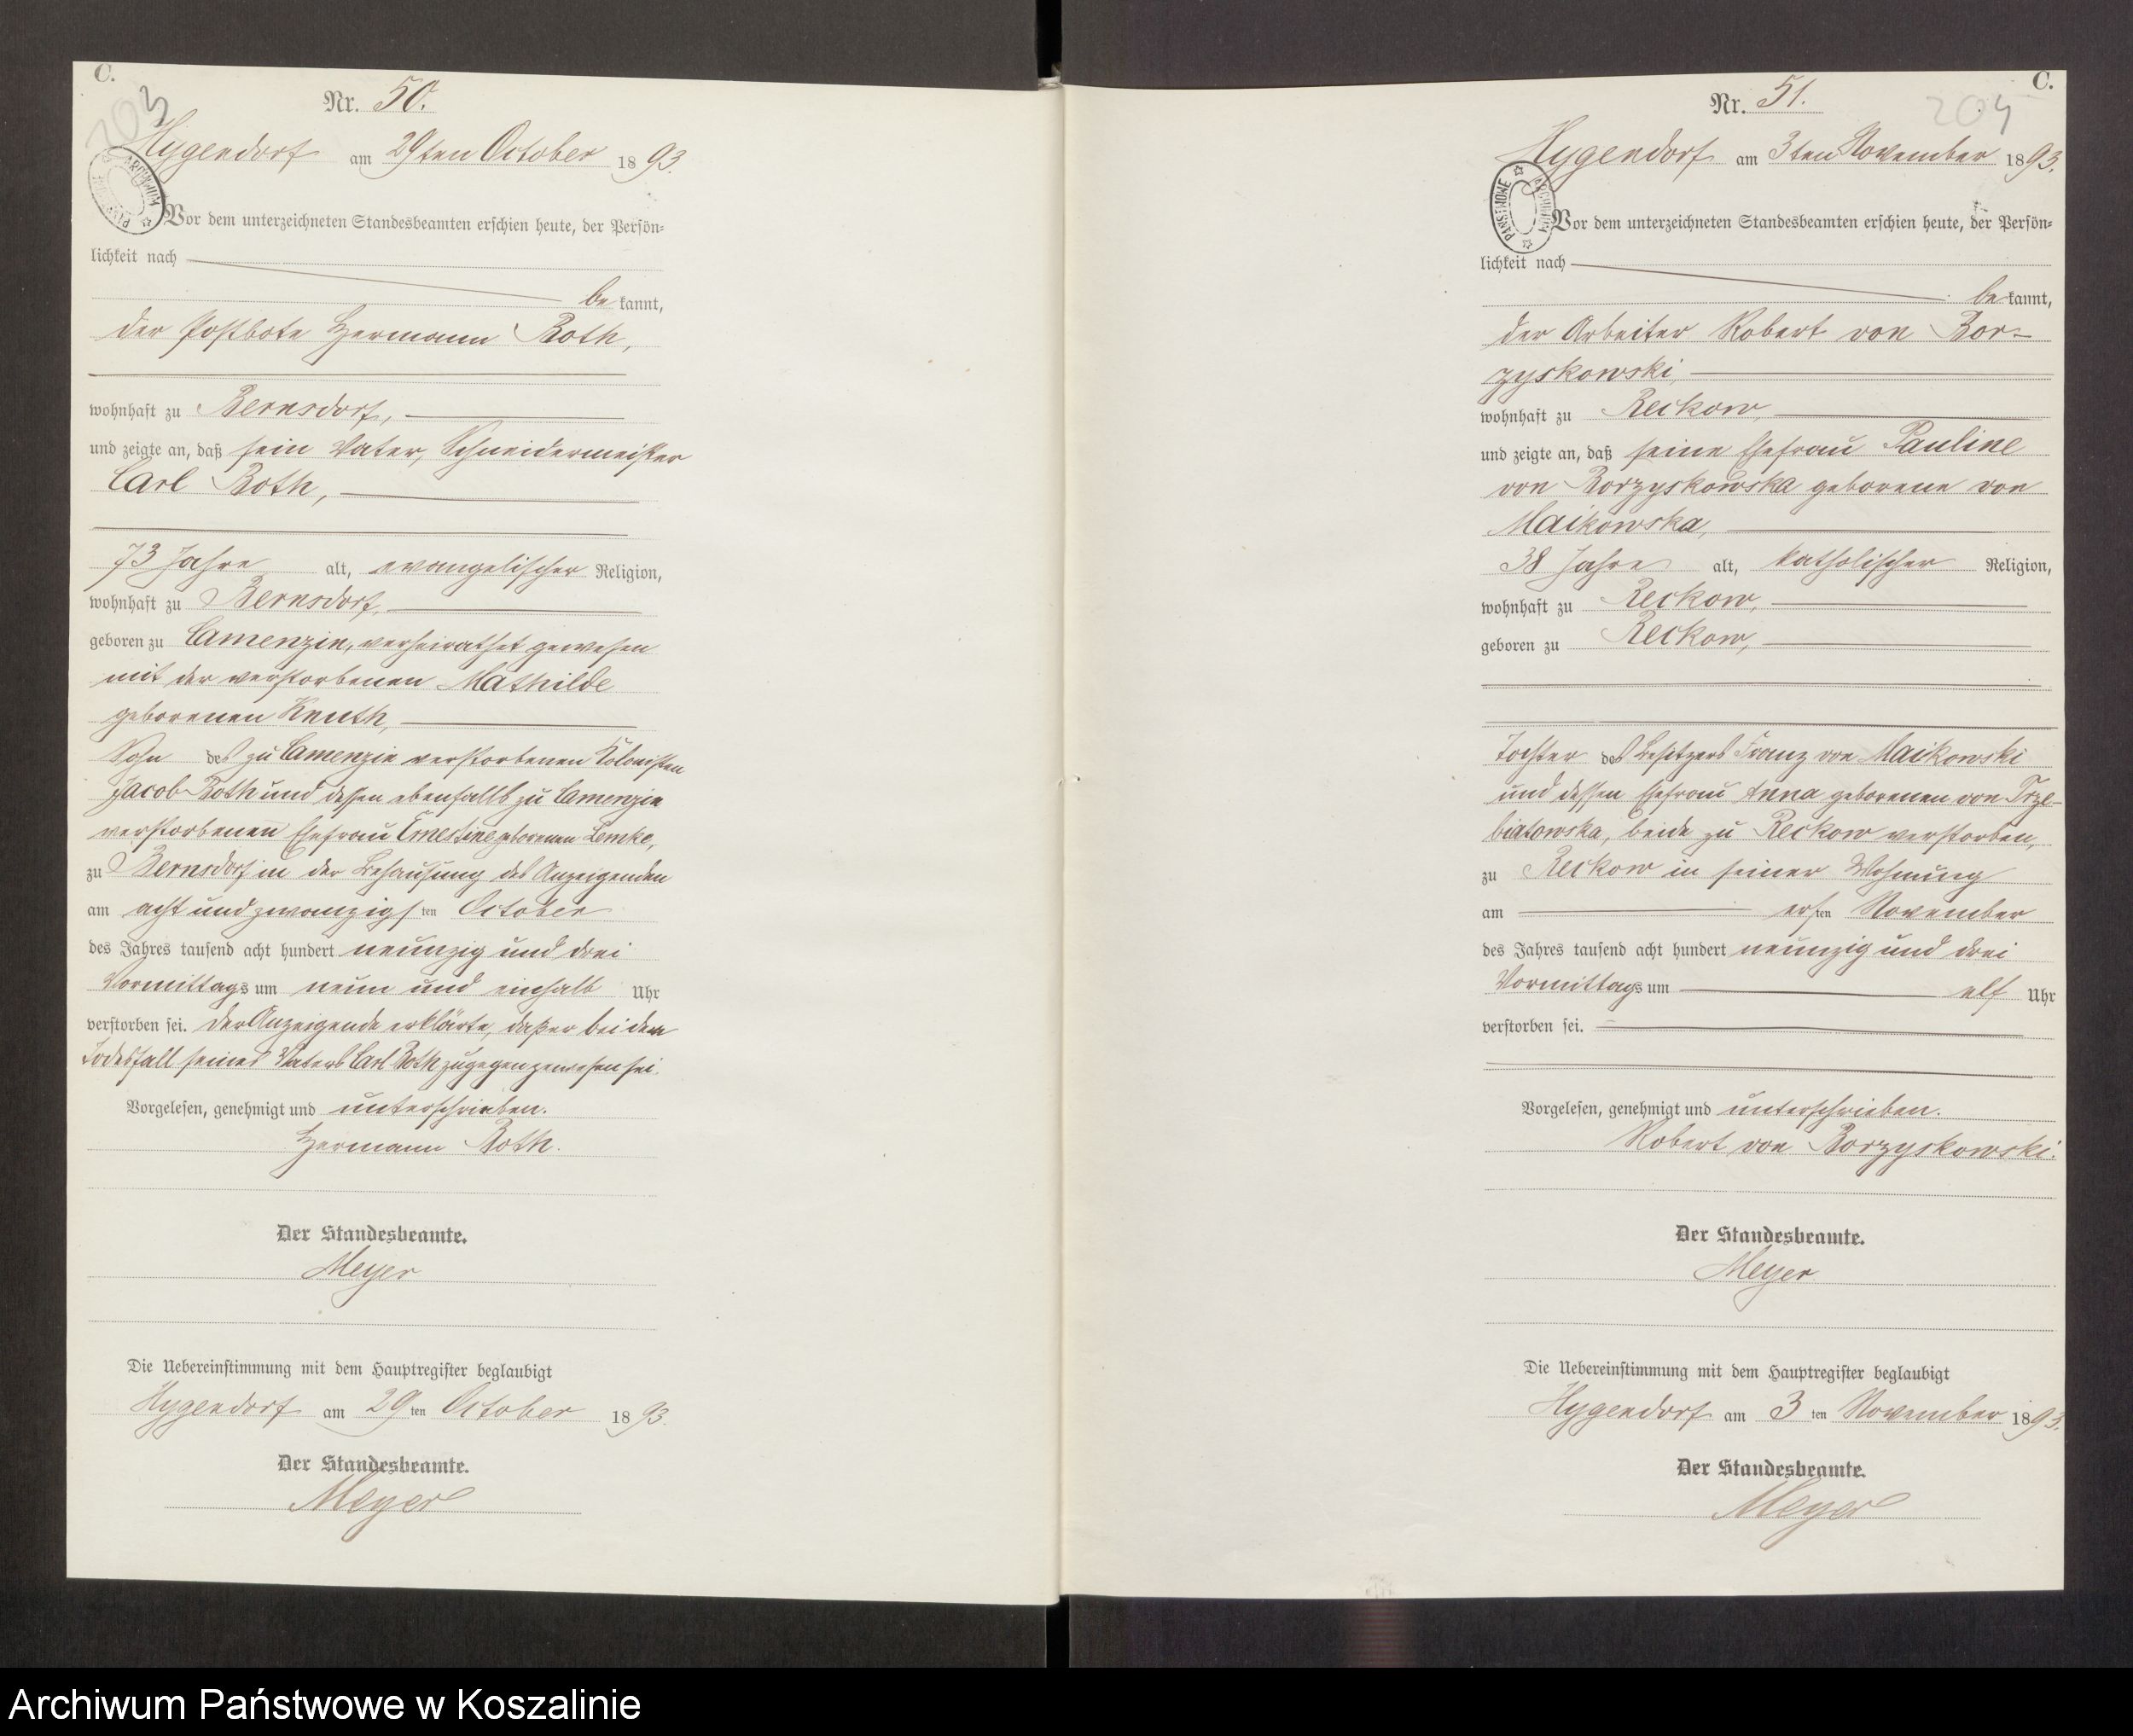 C.
203
Nr. 50.
Hygendorf am 29ten October 1893.
ARCHIWUM PAŃSTWOWE
Vor dem unterzeichneten Standesbeamten erschien heute, der Persön-
lichkeit nach
bekannt,
der Postbote Hermann Roth,
wohnhaft zu Bernsdorf,
und zeigte an, daß sein Vater, Schneidermeister
Carl Roth,
73 Jahre alt, evangelischer Religion,
wohnhaft zu Bernsdorf,
geboren zu Camenzin, verheirathet gewesen
mit der verstorbenen Mathilde
geborenen Knuth,
Sohn des zu Camenzin verstorbenen Kolonisten
Jacob Roth und dessen ebenfalls zu Camenzin
verstorbenen Ehefrau Ernestine geborenen Lemke,
zu Bernsdorf in der Behausung des Anzeigenden
am acht und zwanzigsten October
des Jahres tausend acht hundert neunzig und drei
Vormittags um neun und einhalb Uhr
verstorben sei. Der Anzeigende erklärte, daß er bei dem
Todesfall seines Vaters Carl Roth zugegen gewesen sei.
Vorgelesen, genehmigt und unterschrieben.
Hermann Roth.
Der Standesbeamte.
Meyer
Die Uebereinstimmung mit dem Hauptregister beglaubigt
Hygendorf am 29ten October 1893.
Der Standesbeamte.
Meyer
C.
204
Nr. 51.
Hygendorf am 3ten November 1893.
ARCHIWUM PAŃSTWOWE
Vor dem unterzeichneten Standesbeamten erschien heute, der Persön-
lichkeit nach
bekannt,
der Arbeiter Robert von Bor-
zyskowski,
wohnhaft zu Reckow,
und zeigte an, daß seine Ehefrau Pauline
von Borzyskowska geborene von
Maikowska,
38 Jahre alt, katholischer Religion,
wohnhaft zu Reckow,
geboren zu Reckow,
Tochter des Besitzers Franz von Maikowski
und dessen Ehefrau Anna geborenen von Trze-
biatowska, beide zu Reckow verstorben,
zu Reckow in seiner Wohnung
am ersten November
des Jahres tausend acht hundert neunzig und drei
Vormittags um elf Uhr
verstorben sei.
Vorgelesen, genehmigt und unterschrieben.
Robert von Borzyskowski.
Der Standesbeamte.
Meyer
Die Uebereinstimmung mit dem Hauptregister beglaubigt
Hygendorf am 3ten November 1893.
Der Standesbeamte.
Meyer
Archiwum Państwowe w Koszalinie